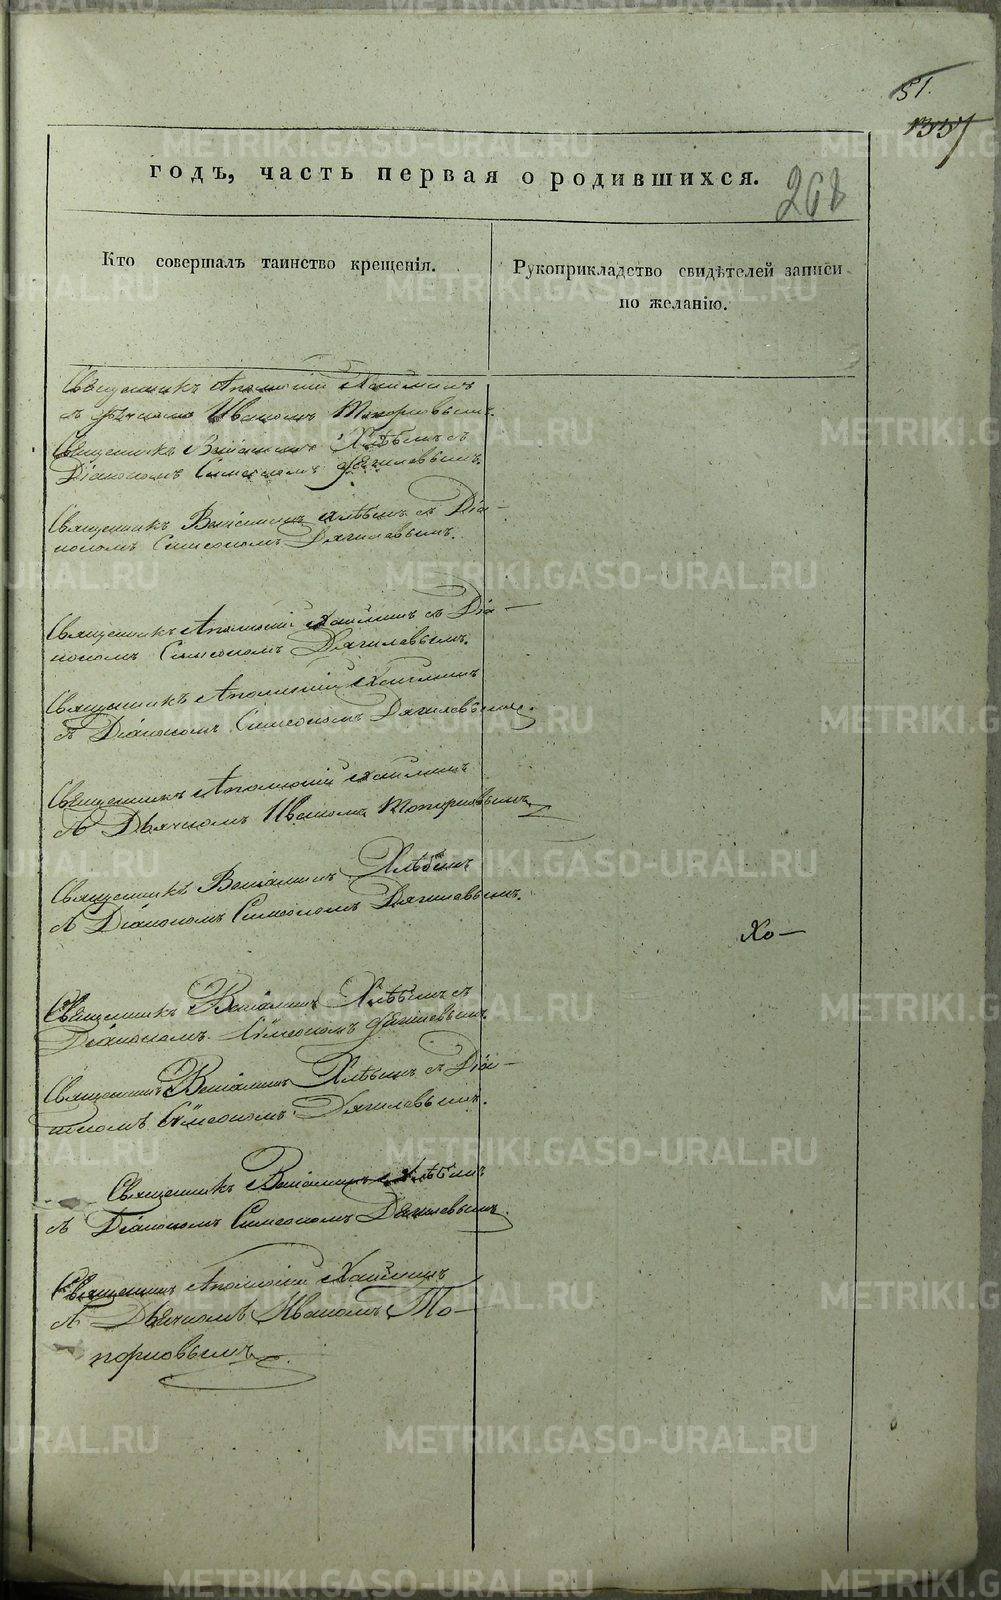 51.
1337
годъ, часть первая о родившихся.
268
Кто совершалъ таинство крещенія.
Рукоприкладство свидѣтелей записи
по желанію.
Священникъ Аполлоній Хайминъ
съ дьячкомъ Иваномъ Топорковымъ.
Священникъ Веніаминъ Хлѣбинъ съ
Діакономъ Симеономъ Дягилевымъ.
Священникъ Веніаминъ Хлѣбинъ съ Діа-
кономъ Симеономъ Дягилевымъ.
Священникъ Аполлоній Хайминъ съ Діа-
кономъ Симеономъ Дягилевымъ.
Священникъ Аполлоній Хайминъ
съ Діакономъ Симеономъ Дягилевымъ.
Священникъ Аполлоній Хайминъ
съ Дьячкомъ Иваномъ Топорковымъ
Священникъ Веніаминъ Хлѣбинъ
съ Діакономъ Симеономъ Дягилевымъ.
Хо-
Священникъ Веніаминъ Хлѣбинъ съ
Діакономъ Симеономъ Дягилевымъ.
Священникъ Веніаминъ Хлѣбинъ съ Діа-
кономъ Симеономъ Дягилевымъ.
Священникъ Веніаминъ Хлѣбинъ
съ Діакономъ Симеономъ Дягилевымъ.
Священникъ Аполлоній Хайминъ
съ Дьячкомъ Иваномъ То-
порковымъ.
METRIKI.GASO-URAL.RU